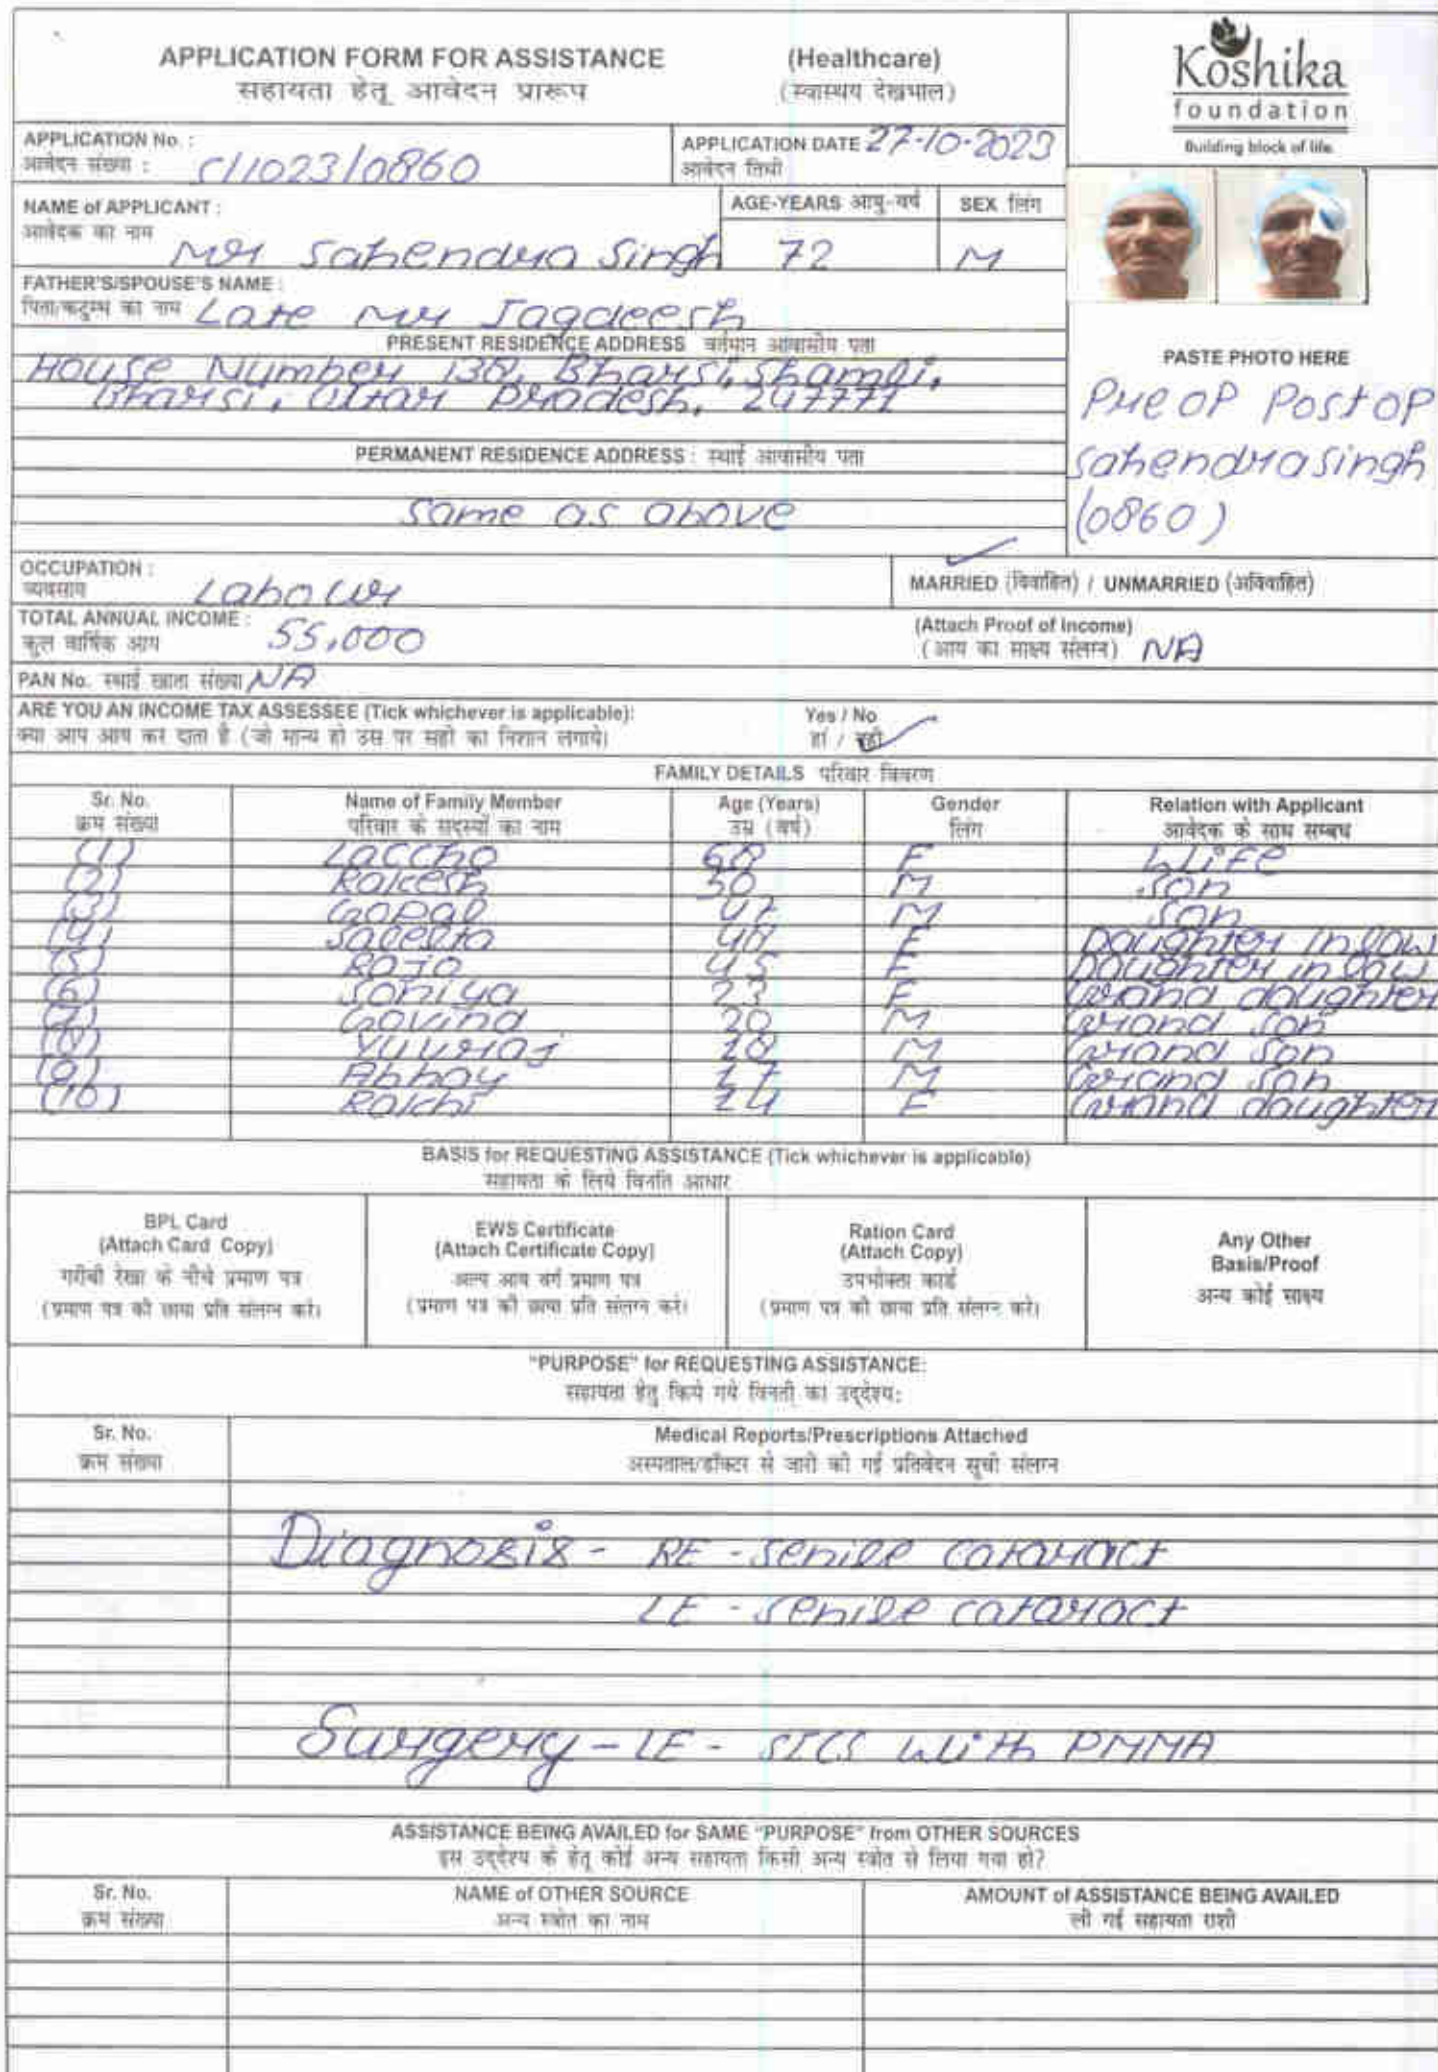 APPLICATION FORM FOR ASSISTANCE (Healthcare)
सहायता हेतू आवेदन प्रारूप (स्वास्थय देखभाल)
Koshika
foundation
Building block of life
APPLICATION No. :
आवेदन संख्या : C/1023/0860
APPLICATION DATE 27-10-2023
आवेदन तिथी
NAME of APPLICANT :
आवेदक का नाम Mr Sahendra Singh
AGE-YEARS आयु-वर्ष 72
SEX लिंग M
FATHER'S/SPOUSE'S NAME :
पिता/कटुम्भ का नाम Late Mr Jagdeesh
PRESENT RESIDENCE ADDRESS वर्तमान आवासीय पता
House Number 138, Bharsi, Shamli,
Bharsi, Uttar Pradesh, 247771
PERMANENT RESIDENCE ADDRESS : स्थाई आवासीय पता
Same as above
PASTE PHOTO HERE
Pre OP Post OP
Sahendra Singh
(0860)
OCCUPATION :
व्यवसाय Labour
MARRIED (विवाहित) / UNMARRIED (अविवाहित)
TOTAL ANNUAL INCOME :
कुल वार्षिक आय 55,000
(Attach Proof of Income)
(आय का साक्ष्य संलग्न) NA
PAN No. स्थाई खाता संख्या NA
ARE YOU AN INCOME TAX ASSESSEE (Tick whichever is applicable): Yes / No
क्या आप आय कर दाता है (जो मान्य हो उस पर सही का निशान लगाये) हां / नही
FAMILY DETAILS परिवार विवरण
Sr. No. Name of Family Member Age (Years) Gender Relation with Applicant
क्रम संख्या परिवार के सदस्यों का नाम उम्र (वर्ष) लिंग आवेदक के साथ सम्बध
(1) Laccho 68 F Wife
(2) Rakesh 50 M Son
(3) Gopal 47 M Son
(4) 48 F Daughter in law
(5) Rajo 45 F Daughter in law
(6) Soniya 23 F Grand daughter
(7) Govind 20 M Grand son
(8) Yuvraj 18 M Grand son
(9) Abhay 17 M Grand son
(10) Rakhi 14 F Grand daughter
BASIS for REQUESTING ASSISTANCE (Tick whichever is applicable)
सहायता के लिये विनति आधार
BPL Card
(Attach Card Copy)
गरीबी रेखा के नीचे प्रमाण पत्र
(प्रमाण पत्र की छाया प्रति संलग्न करे)
EWS Certificate
(Attach Certificate Copy)
अल्प आय वर्ग प्रमाण पत्र
(प्रमाण पत्र की छाया प्रति संलग्न करे)
Ration Card
(Attach Copy)
उपभोक्ता कार्ड
(प्रमाण पत्र की छाया प्रति संलग्न करे)
Any Other
Basis/Proof
अन्य कोई साक्ष्य
"PURPOSE" for REQUESTING ASSISTANCE:
सहायता हेतु किये गये विनती का उद्देश्य:
Sr. No. Medical Reports/Prescriptions Attached
क्रम संख्या अस्पताल/डॉक्टर से जारी की गई प्रतिवेदन सूची संलग्न
Diagnosis - RE - Senile cataract
LE - Senile cataract
Surgery - LE - SICS with PMMA
ASSISTANCE BEING AVAILED for SAME "PURPOSE" from OTHER SOURCES
इस उद्देश्य के हेतू कोई अन्य सहायता किसी अन्य स्त्रोत से लिया गया हो?
Sr. No. NAME of OTHER SOURCE AMOUNT of ASSISTANCE BEING AVAILED
क्रम संख्या अन्य स्त्रोत का नाम ली गई सहायता राशी